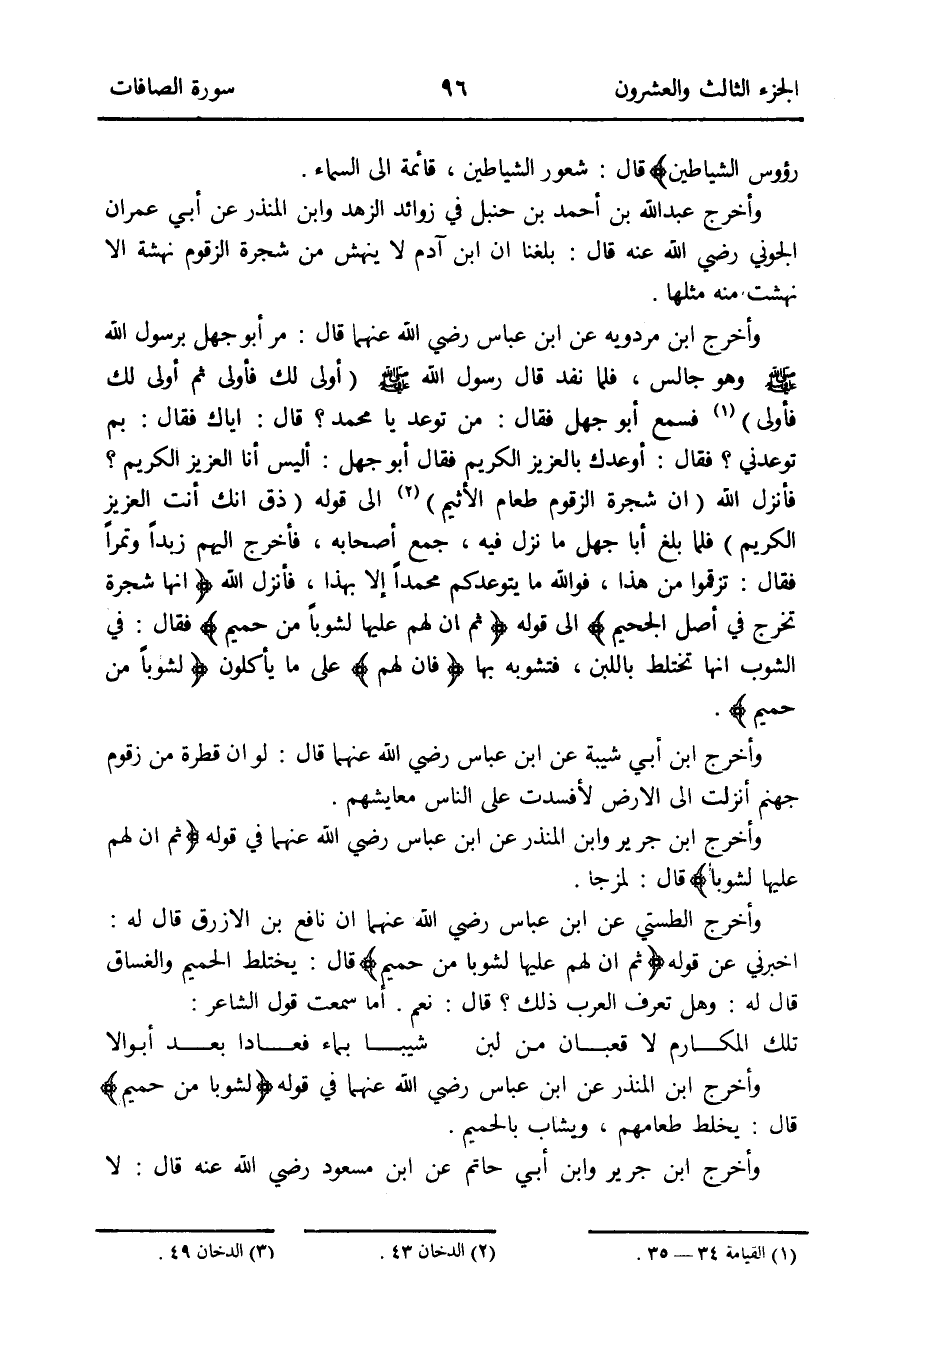 الجزء الثالث والعشرون ٩٦ سورة الصافات
رؤوس الشياطين﴾ قال : شعور الشياطين ، قائمة الى السماء .
وأخرج عبدالله بن أحمد بن حنبل في زوائد الزهد وابن المنذر عن أبي عمران
الجوني رضي الله عنه قال : بلغنا ان ابن آدم لا ينهش من شجرة الزقوم نهشة الا
نهشت منه مثلها .
وأخرج ابن مردويه عن ابن عباس رضي الله عنهما قال : مر أبو جهل برسول الله
ﷺ وهو جالس ، فلما نفد قال رسول الله ﷺ ( أولى لك فأولى ثم أولى لك
فأولى ) (١) فسمع أبو جهل فقال : من توعد يا محمد ؟ قال : اياك فقال : بم
توعدني ؟ فقال : أوعدك بالعزيز الكريم فقال أبو جهل : أليس أنا العزيز الكريم ؟
فأنزل الله ( ان شجرة الزقوم طعام الأثيم ) (٢) الى قوله ( ذق انك أنت العزيز
الكريم ) فلما بلغ أبا جهل ما نزل فيه ، جمع أصحابه ، فأخرج اليهم زبداً وتمراً
فقال : تزقموا من هذا ، فوالله ما يتوعدكم محمداً إلا بهذا ، فأنزل الله ﴿ انها شجرة
تخرج في أصل الجحيم ﴾ الى قوله ﴿ ثم ان لهم عليها لشوباً من حميم ﴾ فقال : في
الشوب انها تختلط باللبن ، فتشوبه بها ﴿ فان لهم ﴾ على ما يأكلون ﴿ لشوباً من
حميم ﴾ .
وأخرج ابن أبي شيبة عن ابن عباس رضي الله عنهما قال : لو ان قطرة من زقوم
جهنم أنزلت الى الارض لأفسدت على الناس معايشهم .
وأخرج ابن جرير وابن المنذر عن ابن عباس رضي الله عنهما في قوله ﴿ ثم ان لهم
عليها لشوبا﴾ قال : لمزجا .
وأخرج الطستي عن ابن عباس رضي الله عنهما ان نافع بن الازرق قال له :
اخبرني عن قوله ﴿ ثم ان لهم عليها لشوبا من حميم ﴾ قال : يختلط الحميم والغساق
قال له : وهل تعرف العرب ذلك ؟ قال : نعم . أما سمعت قول الشاعر :
تلك المكارم لا قعبان من لبن شيبا بماء فعادا بعد أبوالا
وأخرج ابن المنذر عن ابن عباس رضي الله عنهما في قوله ﴿ لشوبا من حميم ﴾
قال : يخلط طعامهم ، ويشاب بالحميم .
وأخرج ابن جرير وابن أبي حاتم عن ابن مسعود رضي الله عنه قال : لا
(١) القيامة ٣٤ — ٣٥ . (٢) الدخان ٤٣ . (٣) الدخان ٤٩ .